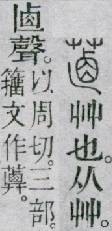 艸也。从艸。
卥聲。以周切。三部。
籒文作